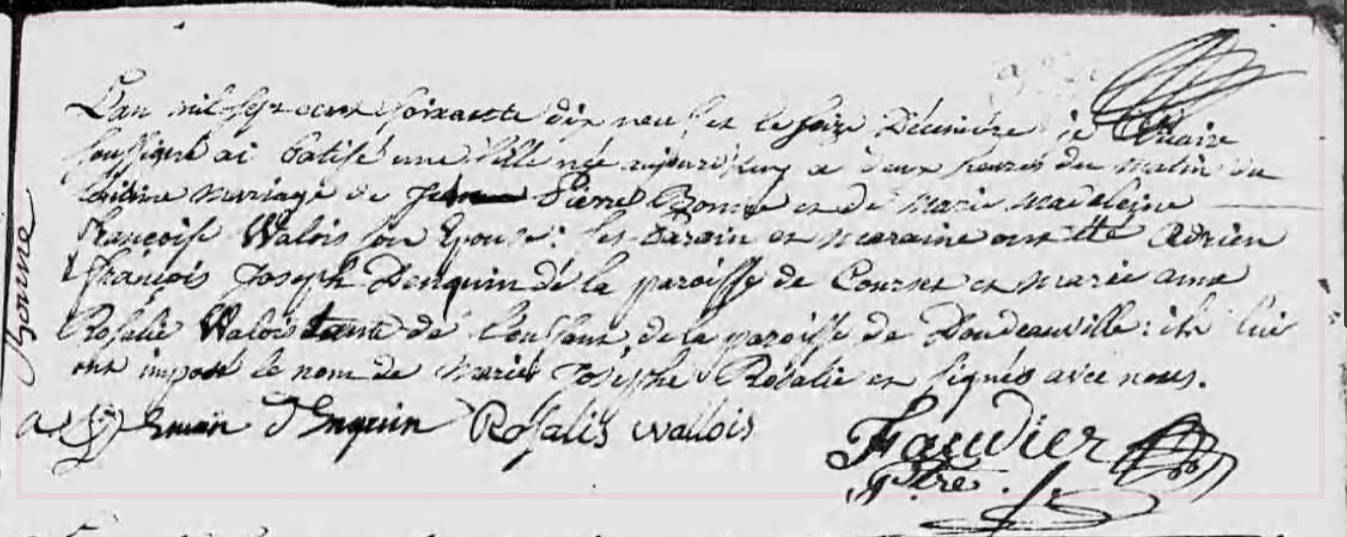 Bonne
L'an mil sept cent soixante dix neuf et le seize Décembre je Vicaire
soussigné ai batisé une fille née aujourd'huy a deux heures du matin du
légitime mariage de Jean Pierre Bonne et de marie madeleine
françoise Walois son Epouse: les parain et maraine ont été Adrien
françois Joseph Denquin de la paroisse de Courset et marie anne
Rosalie Walois tante de l'enfant de la paroisse de Doudeauville: ils lui
ont imposé le nom de marie Josephe Rosalie et signés avec nous.
d'Enquin Rosalis wallois
Faudier
ptre.